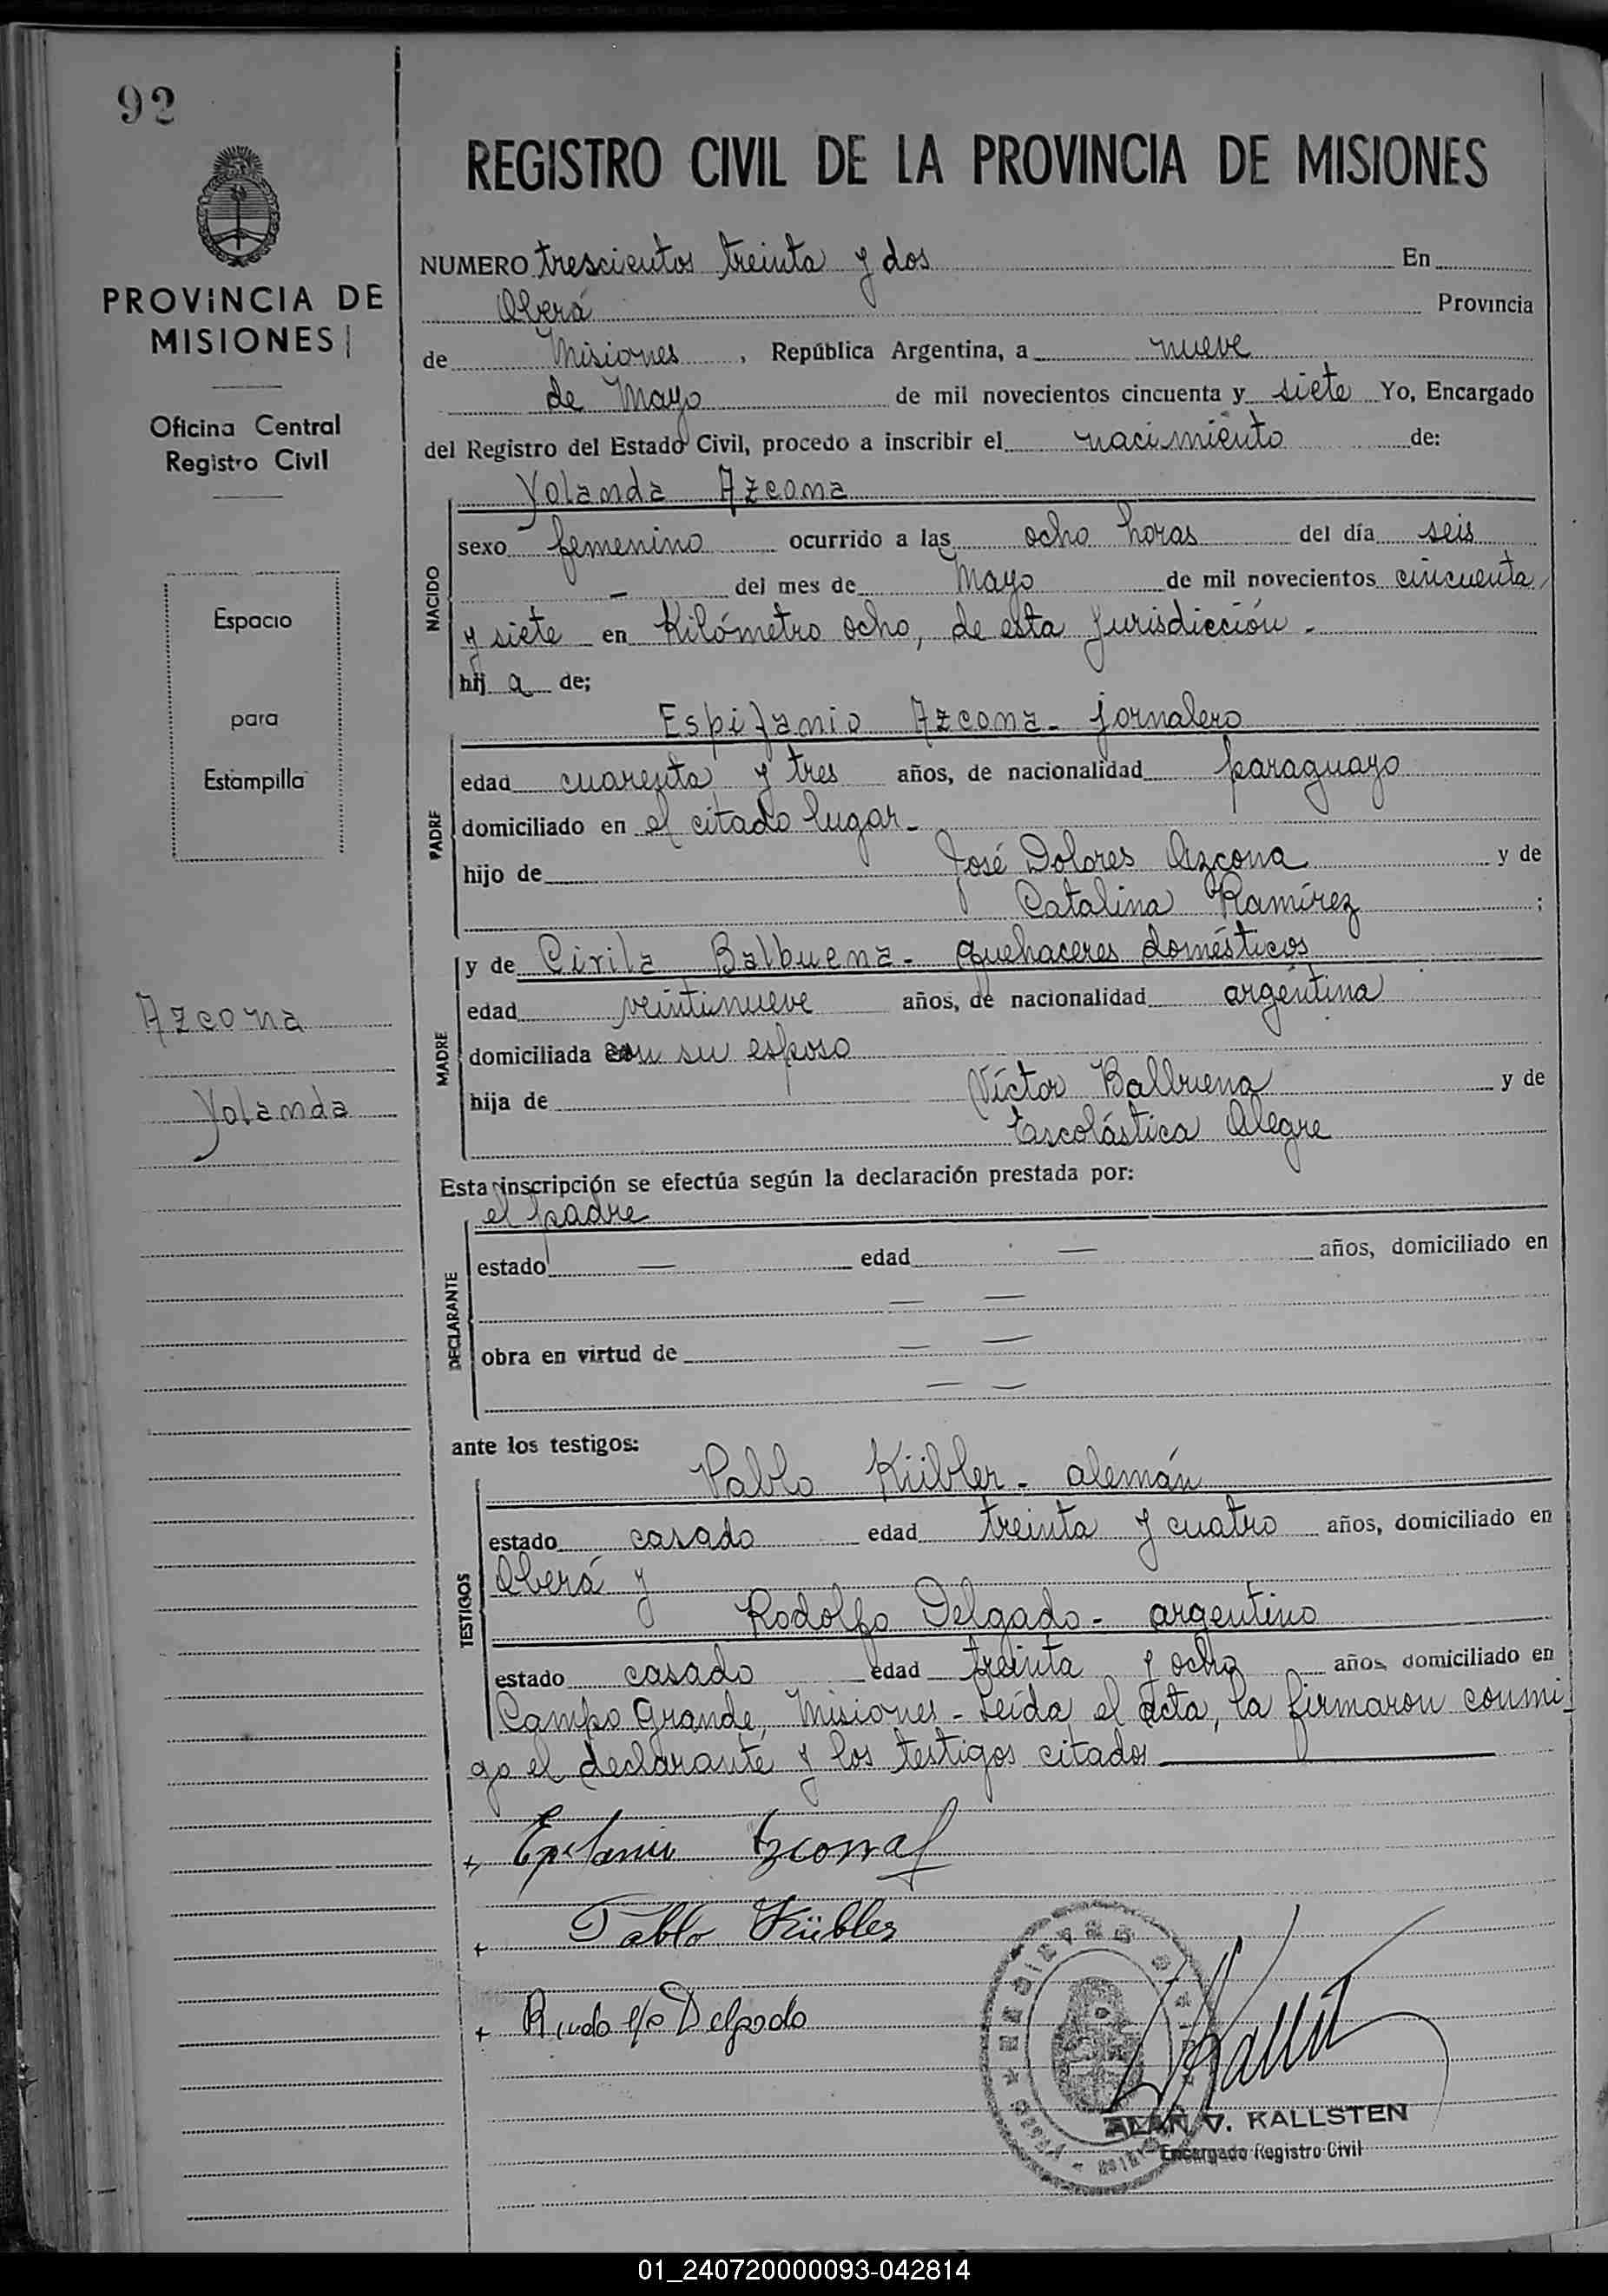 92
PROVINCIA DE
MISIONES
Oficina Central
Registro Civil
Espacio
para
Estampilla
Azcona
Yolanda
REGISTRO CIVIL DE LA PROVINCIA DE MISIONES
NUMERO trescientos treinta y dos En
Oberá Provincia
de Misiones, República Argentina, a nueve
de Mayo de mil novecientos cincuenta y siete Yo, Encargado
del Registro del Estado Civil, procedo a inscribir el nacimiento de:
Yolanda Azcona
NACIDO
sexo femenino ocurrido a las ocho horas del día seis
— del mes de Mayo de mil novecientos cincuenta
y siete en Kilómetro ocho, de esta jurisdicción.-
hij a de;
Espifanio Azcona - jornalero
PADRE
edad cuarenta y tres años, de nacionalidad paraguayo
domiciliado en el citado lugar -
hijo de José Dolores Azcona y de
Catalina Ramírez ;
y de Cirila Balbuena - quehaceres domésticos
MADRE
edad veintinueve años, de nacionalidad argentina
domiciliada con su esposo
hija de Víctor Balbuena y de
Escolástica Alegre
Esta inscripción se efectúa según la declaración prestada por:
el padre
DECLARANTE
estado — edad — años, domiciliado en
— —
obra en virtud de — —
— —
ante los testigos:
Pablo Kübler - alemán
TESTIGOS
estado casado edad treinta y cuatro años, domiciliado en
Oberá y
Rodolfo Delgado - argentino
estado casado edad treinta y ocho años domiciliado en
Campo Grande, Misiones - Leída el acta, la firmaron conmi-
go el declarante y los testigos citados
+ Epifanio Azcona
+ Pablo Kübler
+ Rudolfo Delgado
V. KALLSTEN
Encargado Registro Civil
01_240720000093-042814